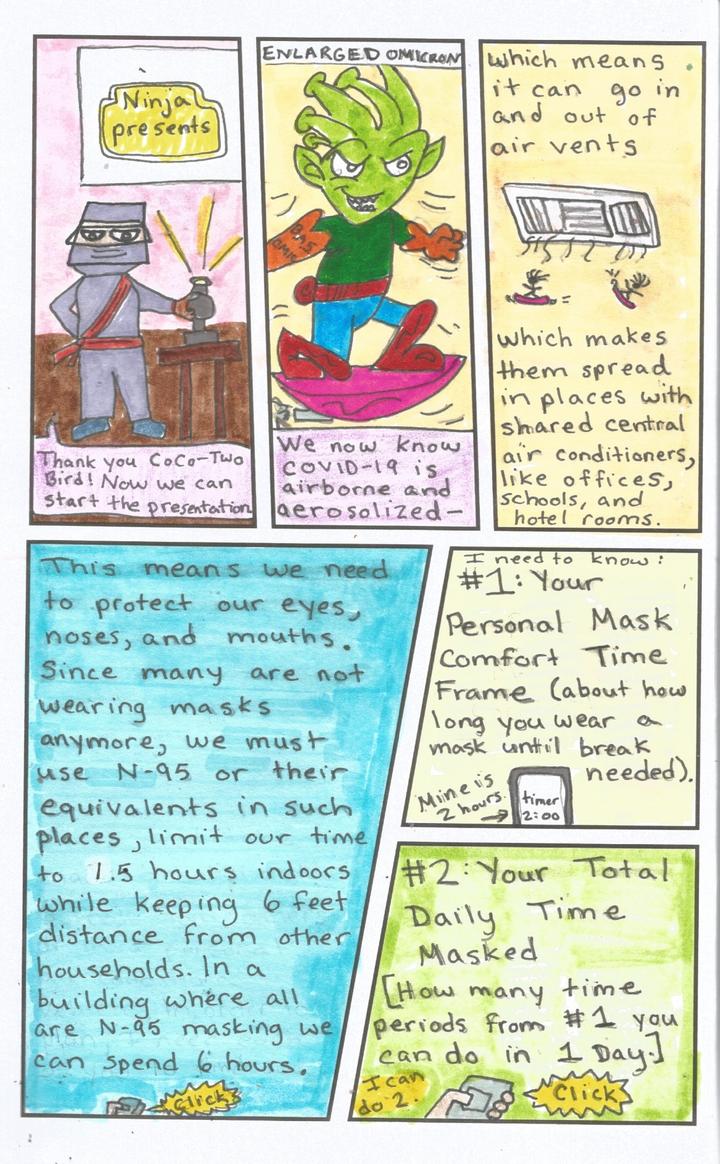 Ninja
presents
Thank you CoCo-Two
Bird! Now we can
start the presentation
ENLARGED OMICRON
BA.5
OMIK
We now know
COVID-19 is
airborne and
aerosolized—
which means
it can go in
and out of
air vents
which makes
them spread
in places with
shared central
air conditioners,
like offices,
schools, and
hotel rooms.
This means we need
to protect our eyes,
noses, and mouths.
Since many are not
wearing masks
anymore, we must
use N-95 or their
equivalents in such
places, limit our time
to 1.5 hours indoors
while keeping 6 feet
distance from other
households. In a
building where all
are N-95 masking we
can spend 6 hours.
Click
I need to know:
#1: Your
Personal Mask
Comfort Time
Frame (about how
long you wear a
mask until break
needed).
Mine is
2 hours.
timer
2:00
#2: Your Total
Daily Time
Masked
[How many time
periods from #1 you
can do in 1 Day.]
I can
do 2.
Click